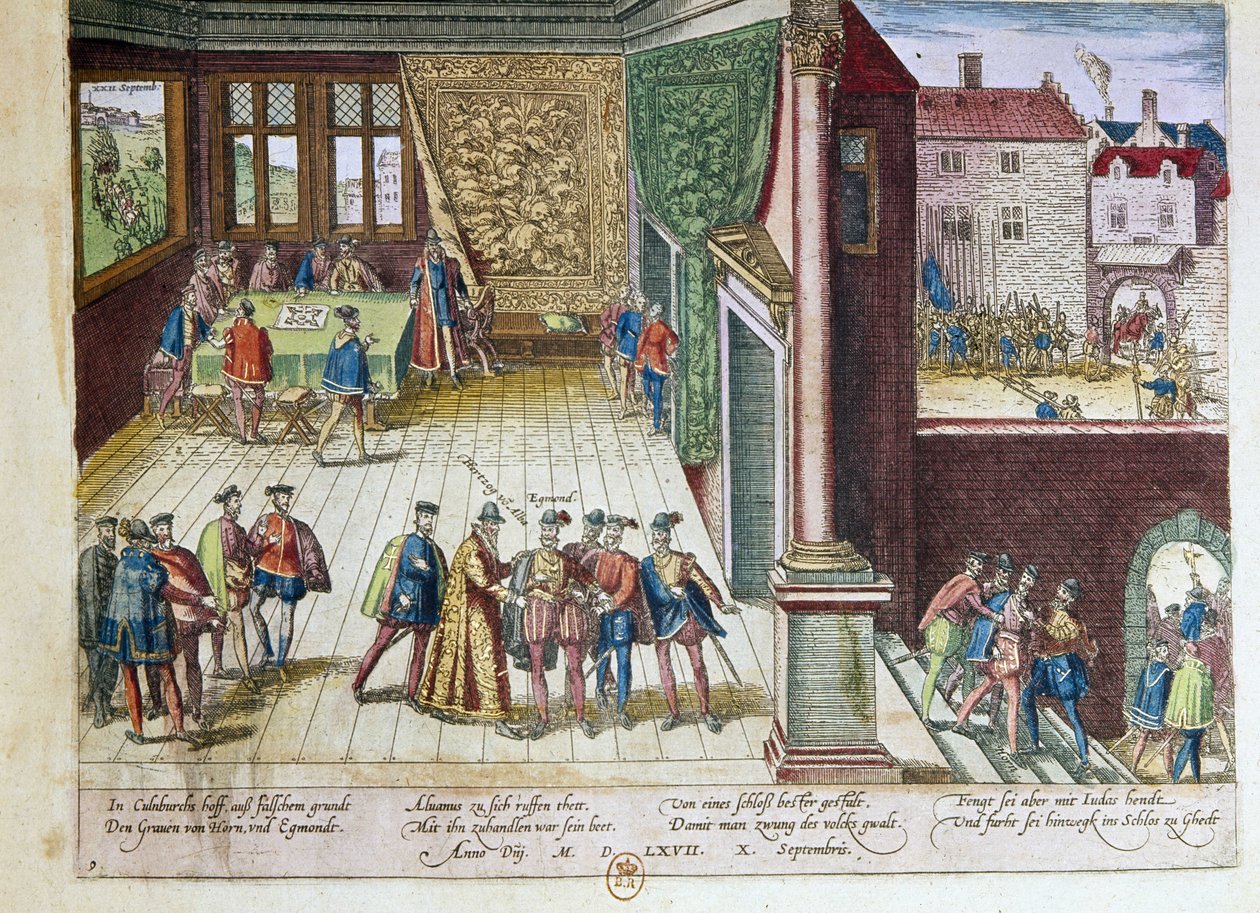 XXII Septemb.
Hertzog Vō Alba
Egmond
Horn
In Culnburchs hoff, auß falschem grundt
Den Grauen von Horn, vnd Egmondt.
Aluanus zu sich ruffen thett.
Mit ihn zuhandlen war sein beet.
Von eines schloß bester gestalt,
Damit man zwung des volcks gwalt.
Fengt sei aber mit Iudas hendt
Vnd furht sei hinwegk ins Schlos zu Ghedt
Anno Dñj. M. D. LXVII. X. Septembris.
9
B.R